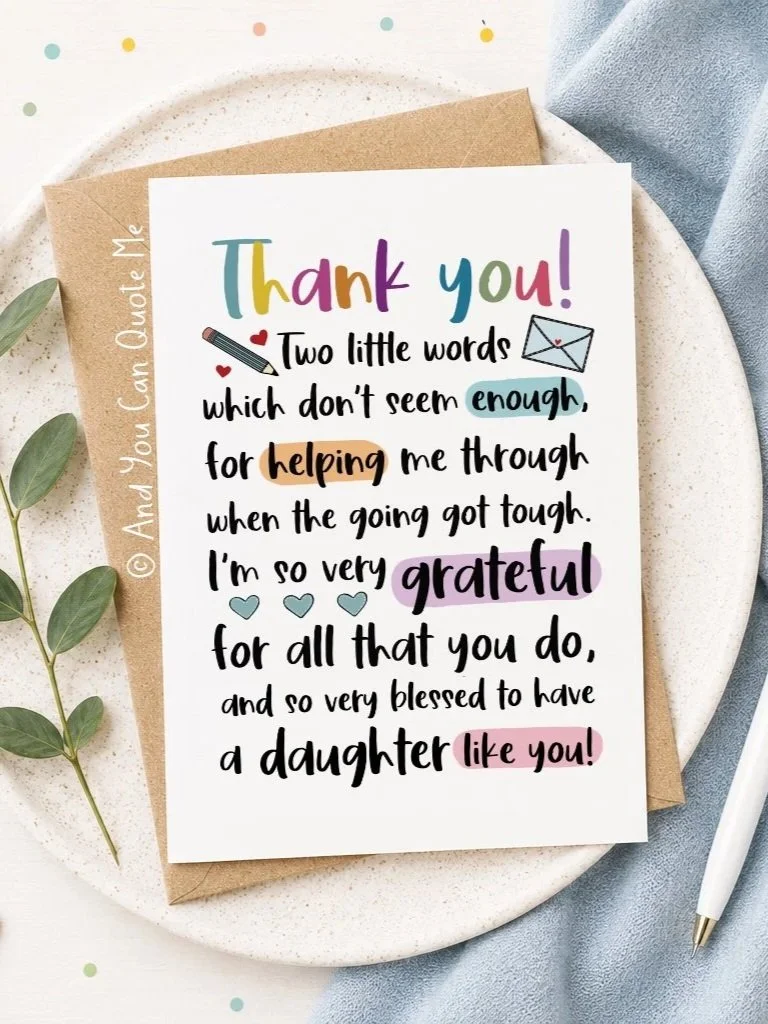 Thank you!
Two little words
which don't seem enough,
for helping me through
when the going got tough.
I'm so very grateful
for all that you do,
and so very blessed to have
a daughter like you!
© And You Can Quote Me